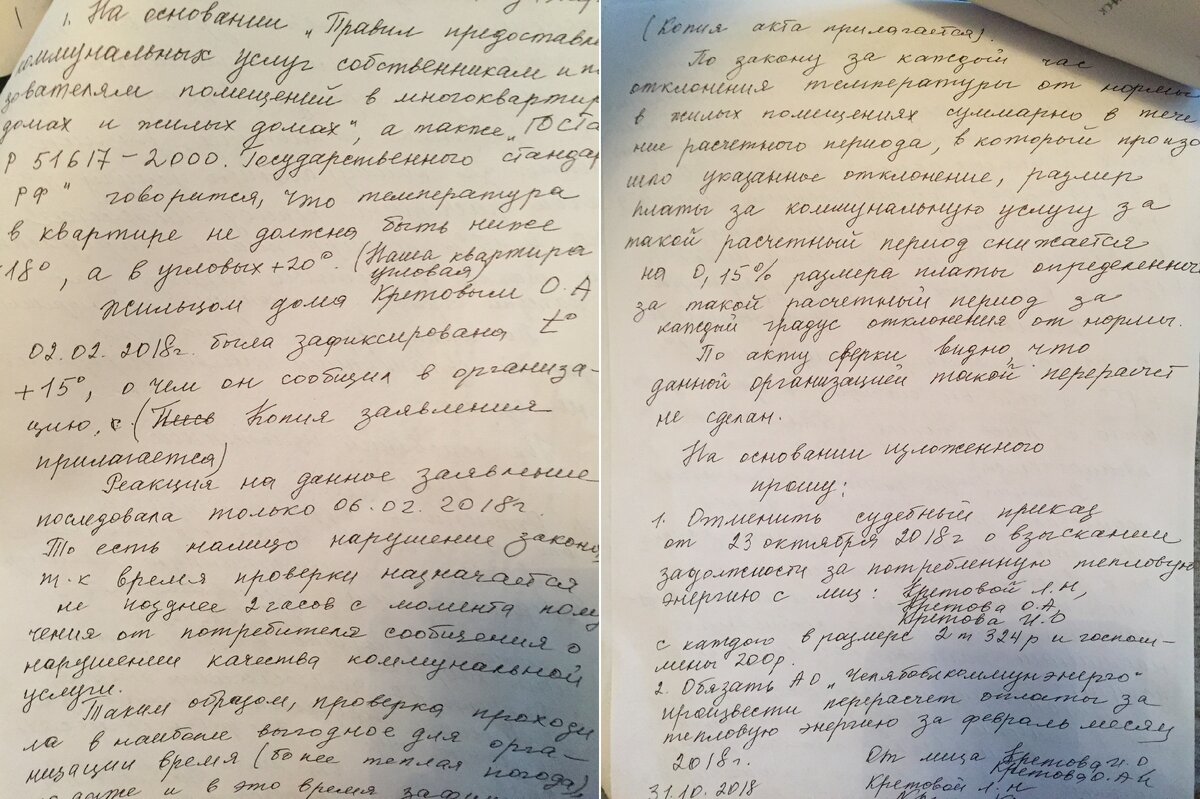 1. На основании „Правил предоставле
коммунальных услуг собственникам и п
зователям помещений в многокварти
домах и жилых домах", а также „ГОСТа
Р 51617-2000. Государственного стандар
РФ" говорится, что температура
в квартире не должна быть ниже
18°, а в угловых +20°. (Наша квартира
угловая
Жильцом дома Кретовым О.А
02.02.2018г. была зафиксирована t°
+15°, о чем он сообщил в организа-
цию, (Копия заявления
прилагается)
Реакция на данное заявление
последовала только 06.02.2018г.
То есть налицо нарушение закона,
т.к время проверки назначается
не позднее 2 часов с момента полу
чения от потребителя сообщения о
нарушении качества коммунальной
услуги.
Таким образом, проверка проходи
ла в наиболее выгодное для орга-
низации время (более теплая погода)
даже и в это время
(Копия акта прилагается).
По закону за каждый час
отклонения температуры от нормы
в жилых помещениях суммарно в тече
ние расчетного периода, в который произо
шло указанное отклонение, размер
платы за коммунальную услугу за
такой расчетный период снижается
на 0,15% размера платы определенно
за такой расчетный период за
каждый градус отклонения от нормы.
По акту сверки видно, что
данной организацией такой перерасчет
не сделан.
На основании изложенного
прошу:
1. Отменить судебный приказ
от 23 октября 2018г о взыскании
задолжности за потребленную тепловую
энергию с лиц: Кретовой Л.Н,
Кретова О.А,
Кретова И.О
с каждого в размере 2т 324р и госпош-
лины 200р.
2. Обязать АО „Челябоблкоммунэнерго"
произвести перерасчет оплаты за
тепловую энергию за февраль месяц
2018г.
От лица Кретова И.О
Кретова О.А
31.10.2018 Кретовой Л.Н